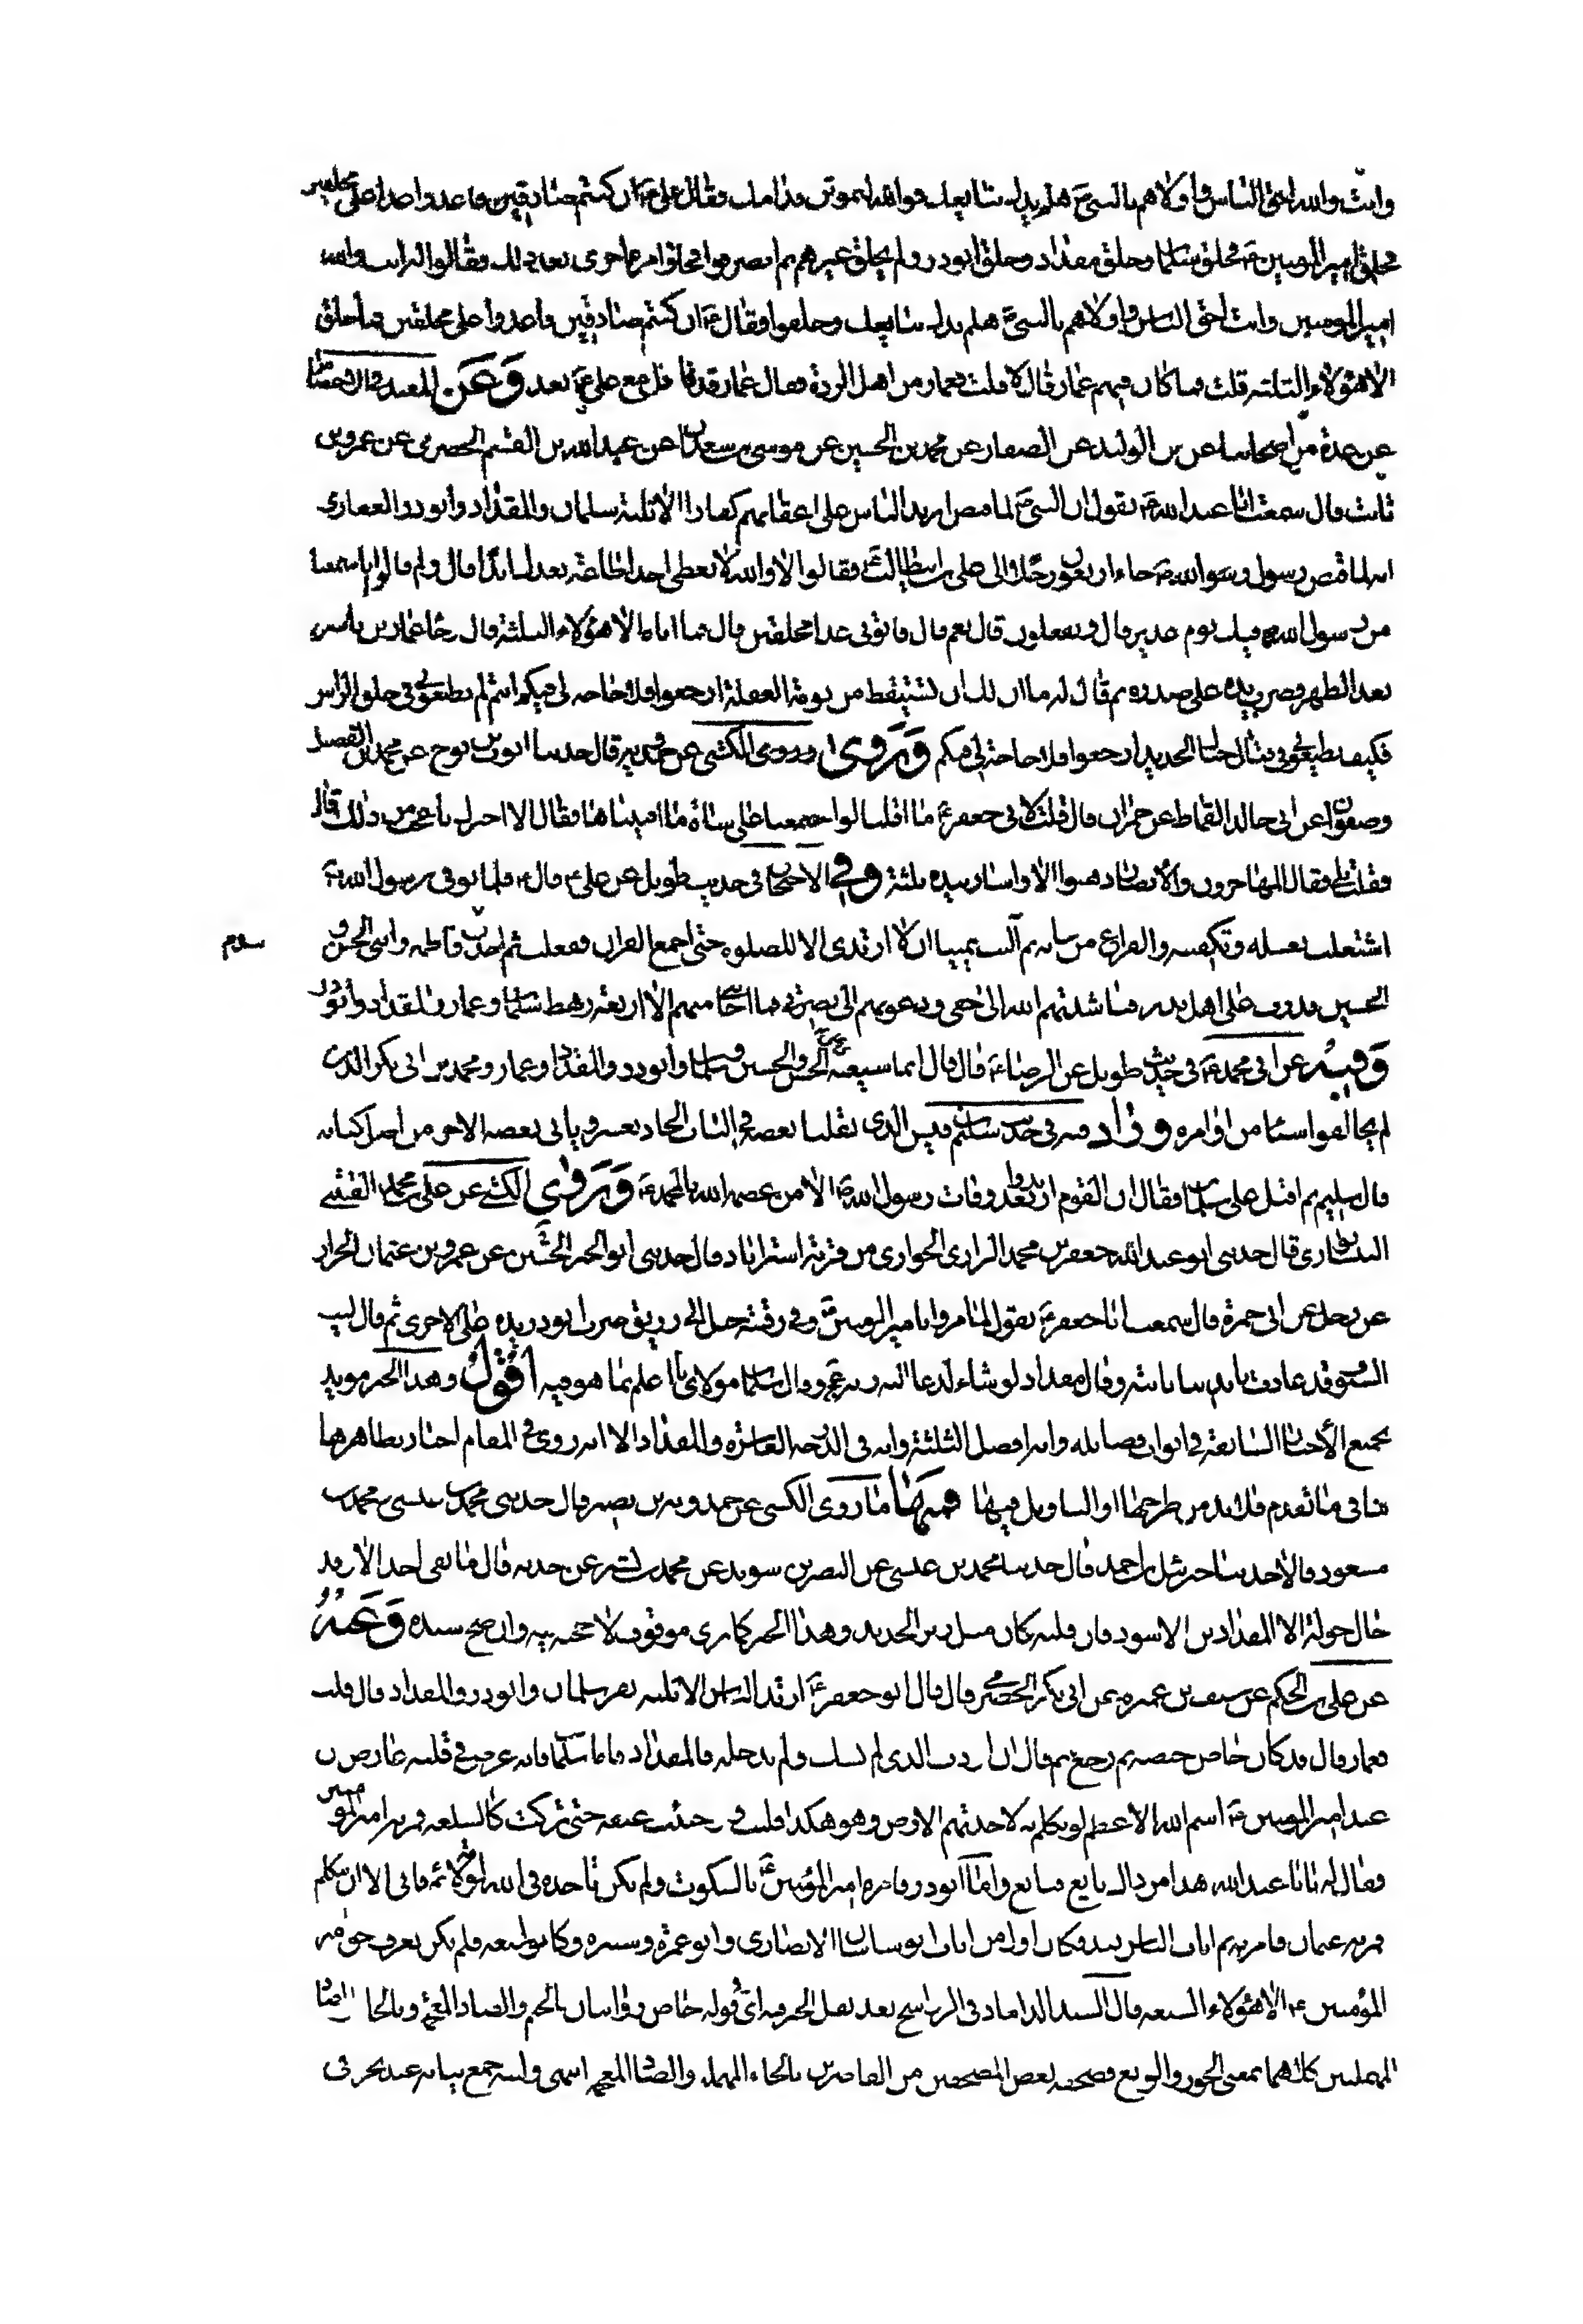 وانت والله احق الناس واولاهم بالنبي ص هلم يدك نبايعك فوالله لنموتن قدامك فقال علي ع ان كنتم صادقين فاغدوا غدا علي محلقين
فحلق امير المومنين ع وحلق سلمان وحلق مقداد وحلق ابوذر ولم يحلق غيرهم ثم انصرفوا فجاؤا مرة اخرى بعد ذلك فقالوا انت والله
امير المومنين وانت احق الناس واولاهم بالنبي ص هلم يدك نبايعك وحلفوا فقال ع ان كنتم صادقين فاغدوا علي محلقين فما حلق
الا هؤلاء الثلثة قلت فما كان فيهم عمار قال لا قلت فعمار من اهل الردة فقال عمار قد قاتل مع علي ع بعد وعن المفيد في الاختصاص
عن عدة من اصحابنا عن بن الوليد عن الصفار عن محمد بن الحسين عن موسى بن سعدان عن عبدالله بن القسم الحضرمي عن عمرو بن
ثابت قال سمعت ابا عبدالله ع يقول ان النبي ص لما قبض ارتد الناس على اعقابهم كفارا الا ثلثة سلمان والمقداد وابوذر الغفاري
انه لما قبض رسول الله ص جاء اربعون رجلا الى علي بن ابيطالب ع فقالوا لا والله لا نعطي احدا طاعة بعدك ابدا قال ولم قالوا انا سمعنا
من رسول الله ص فيك يوم غدير قال وتفعلون قال نعم قال فاتوني غدا محلقين قال فما اتاه الا هؤلاء الثلثة قال وجاء عمار بن ياسر
بعد الظهر فضرب يده على صدره ثم قال له ما ان لك ان تستيقظ من نومة الغفلة ارجعوا فلا حاجة لي فيكم انتم لم تطيعوني في حلق الراس
فكيف تطيعوني في قتال جبال الحديد ارجعوا فلا حاجة لي فيكم وروى وروى الكشي عن حمدويه قال حدثنا ايوب بن نوح عن محمد بن الفضل
وصفوان عن ابي خالد القماط عن حمران قال قلت لابي جعفر ع ما اقلنا لو اجتمعنا على شاة ما افنيناها فقال الا اخبرك باعجب من ذلك قال
فقلت بلى فقال المهاجرون والانصار ذهبوا الا واشار بيده ثلثة وفي الاحتجاج في حديث طويل عن علي ع قال ع فلما توفي رسول الله ص
اشتغلت بغسله وتكفينه والفراغ من شانه ثم اليت يمينا ان لا ارتدى الا للصلوة حتى اجمع القران ففعلت ثم اخذت بيد فاطمة وابني الحسن و
سلام
الحسين فدرت على اهل بدر فناشدتهم الله الى حقي ودعوتهم الى نصرتي فما اجابني منهم الا اربعة رهط سلمان وعمار والمقداد وابوذر
وفيه عن ابي محمد ع في حديث طويل عن الرضا ع قال قال انما شيعته الحسن والحسين وسلمان وابوذر والمقداد وعمار ومحمد بن ابي بكر الذين
لم يخالفوا شيئا من اوامره وزاد فيه في حديث سليم
قال سليم ثم اقبل علي سلمان فقال ان القوم ارتدوا بعد وفات رسول الله ص الا من عصمه الله بال محمد ع وروى الكشي عن علي بن محمد القتيبي
النيشابوري قال حدثني ابو عبدالله جعفر بن محمد الرازي الخواري من قرية استراباد قال حدثني ابو الخير عن عمرو بن عثمان الخزاز
عن رجل عن ابي حمزة قال سمعت ابا جعفر ع يقول لما مروا بامير المومنين ع وفي رقبته حبل ال زريق ضرب ابوذر بيده على الاخرى ثم قال ليت
السيوف قد عادت بايدينا ثانية وقال مقداد لو شاء لدعا عليه ربه عز وجل وقال سلمان مولاي اعلم بما هو فيه اقول وهذا الخبر مويد
بجميع الاخبار السابقة في ابواب فضايله وانه افضل الثلثة وانه في الدرجة العاشرة والمقداد الا انه روى في المقام اخبار بظاهرها
ينافي ما تقدم فلا بد من طرحها او التاويل فيها فمنها ما روى الكشي عن حمدويه بن نصير قال حدثني محمد بن عيسى ومحمد بن
مسعود قالا حدثنا جبرئيل بن احمد قال حدثنا محمد بن عيسى عن النضر بن سويد عن محمد بن بشير عن حدثه قال ما بقي احد الا وقد
جال جولة الا المقداد بن الاسود فان قلبه كان مثل زبر الحديد وهذا الخبر كما ترى موقوف لا حجة فيه وان صح سنده وعنه
عن علي بن الحكم عن سيف بن عميره عن ابي بكر الحضرمي قال قال ابو جعفر ع ارتد الناس الا ثلثة نفر سلمان وابوذر والمقداد قال قلت
فعمار قال قد كان جاض جيضة ثم رجع ثم قال ان اردت الذي لم يشك ولم يدخله فالمقداد فاما سلمان فانه عرض في قلبه عارض ان
عند امير المومنين ع اسم الله الاعظم لو تكلم به لاخذتهم الارض وهو هكذا فلبب و عنقه حتى تركت كالسلعة فمر به امير المومنين
فقال له يا ابا عبدالله هذا من ذاك بايع فبايع واما ابوذر فامره امير المؤمنين ع بالسكوت ولم يكن ياخذه في الله لومة لائم فابى الا ان يتكلم
فمر به عثمان فامر به ثم اناب الناس بعد فكان اول من اناب ابو ساسان الانصاري وابو عمرة وشتيره وكانوا سبعة فلم يكن يعرف حق امير
المؤمنين ع الا هؤلاء السبعة قال السيد الداماد في الرواشح بعد نقل الخبر قوله جاض بالجيم والضاد المعجمة وبالحاء والصاد
المهملتين كلاهما بمعنى الحور والزيغ وصحفه بعض المصحفين من القاصرين بالحاء المهملة والضاد المعجمة انتهى